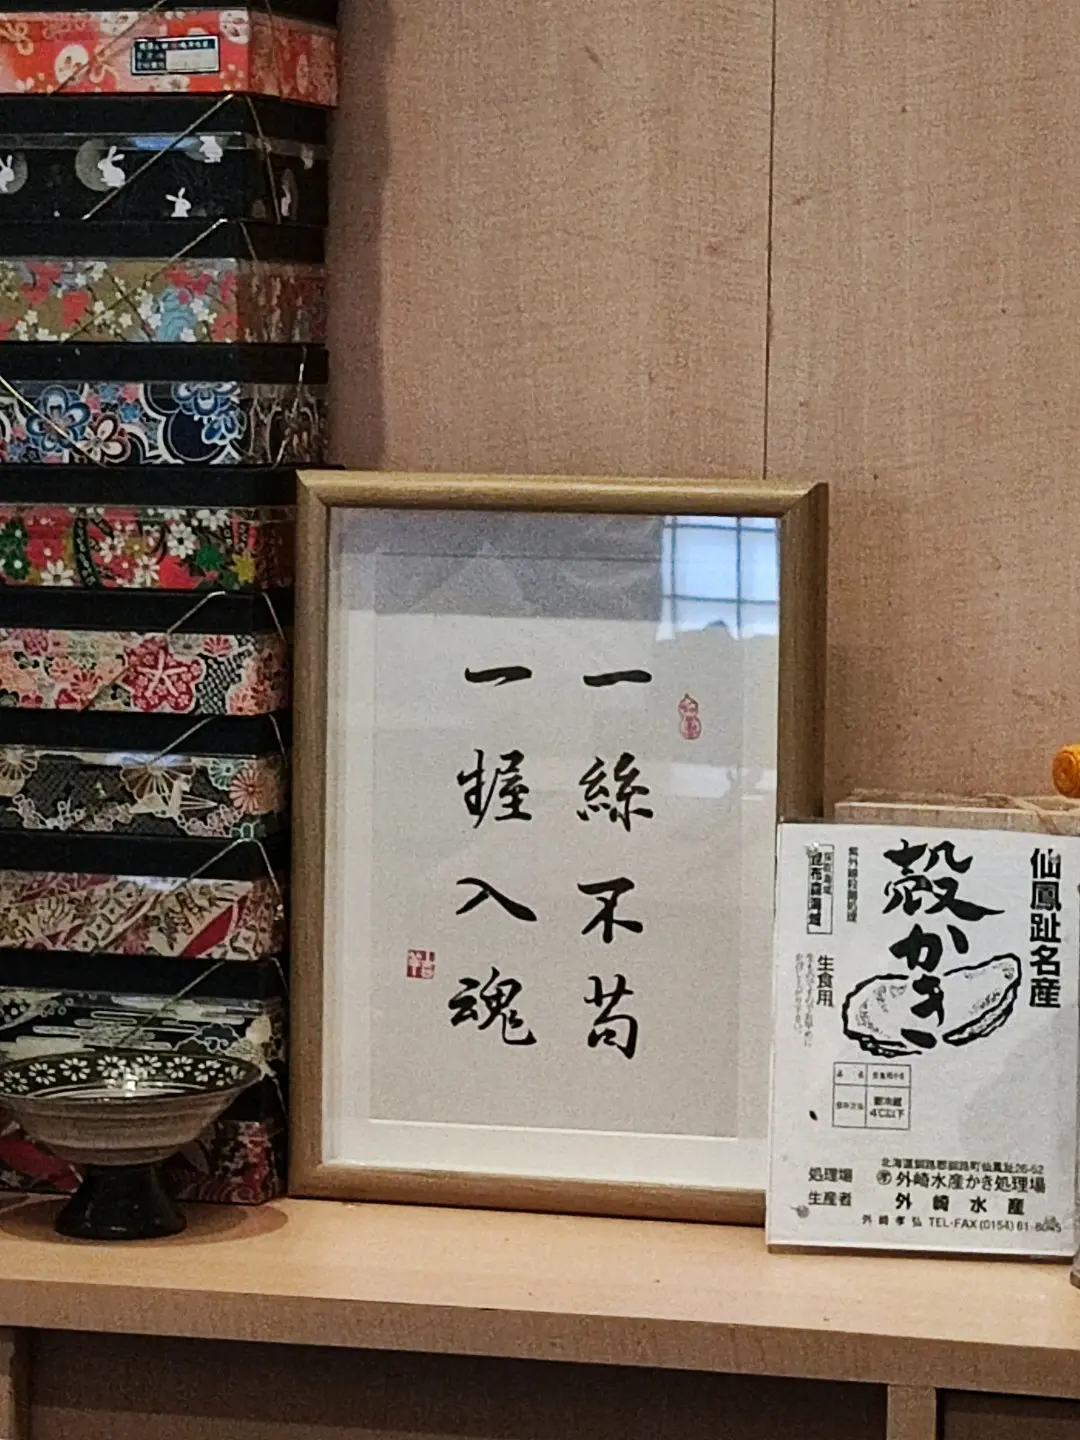 一絲不苟
一握入魂
仙鳳趾名産
殻かき
紫外線殺菌処理
採取海域
昆布森海域
生食用
4℃以下
北海道釧路郡釧路町仙鳳趾26-52
処理場 外崎水産かき処理場
生産者 外崎水産
外崎孝弘 TEL・FAX (0154) 61-